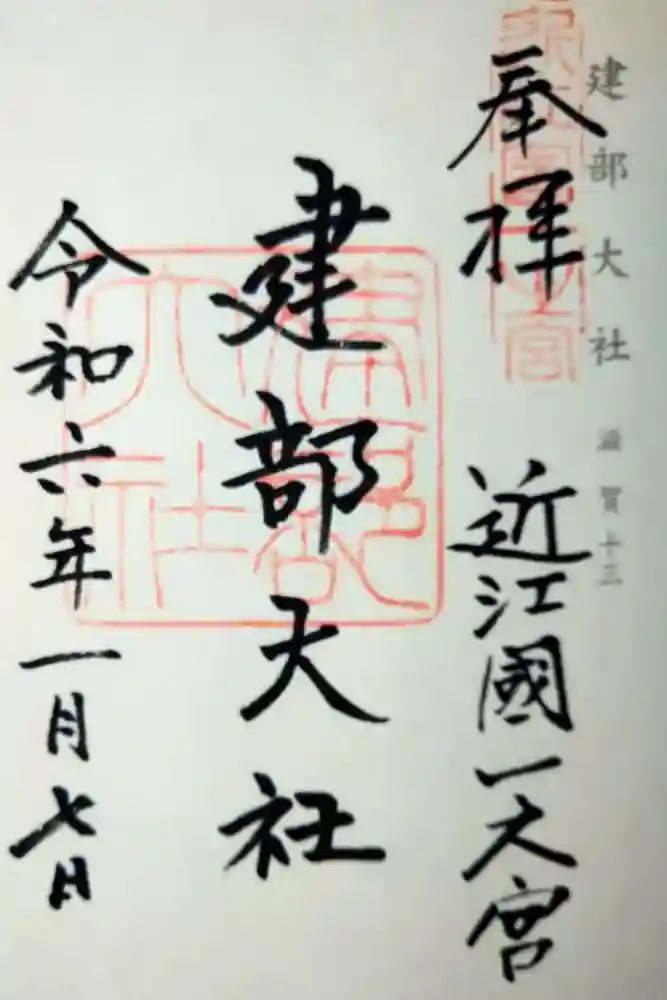 建部大社 滋賀十三
奉拝 近江國一大宮
建部大社
令和六年一月七日